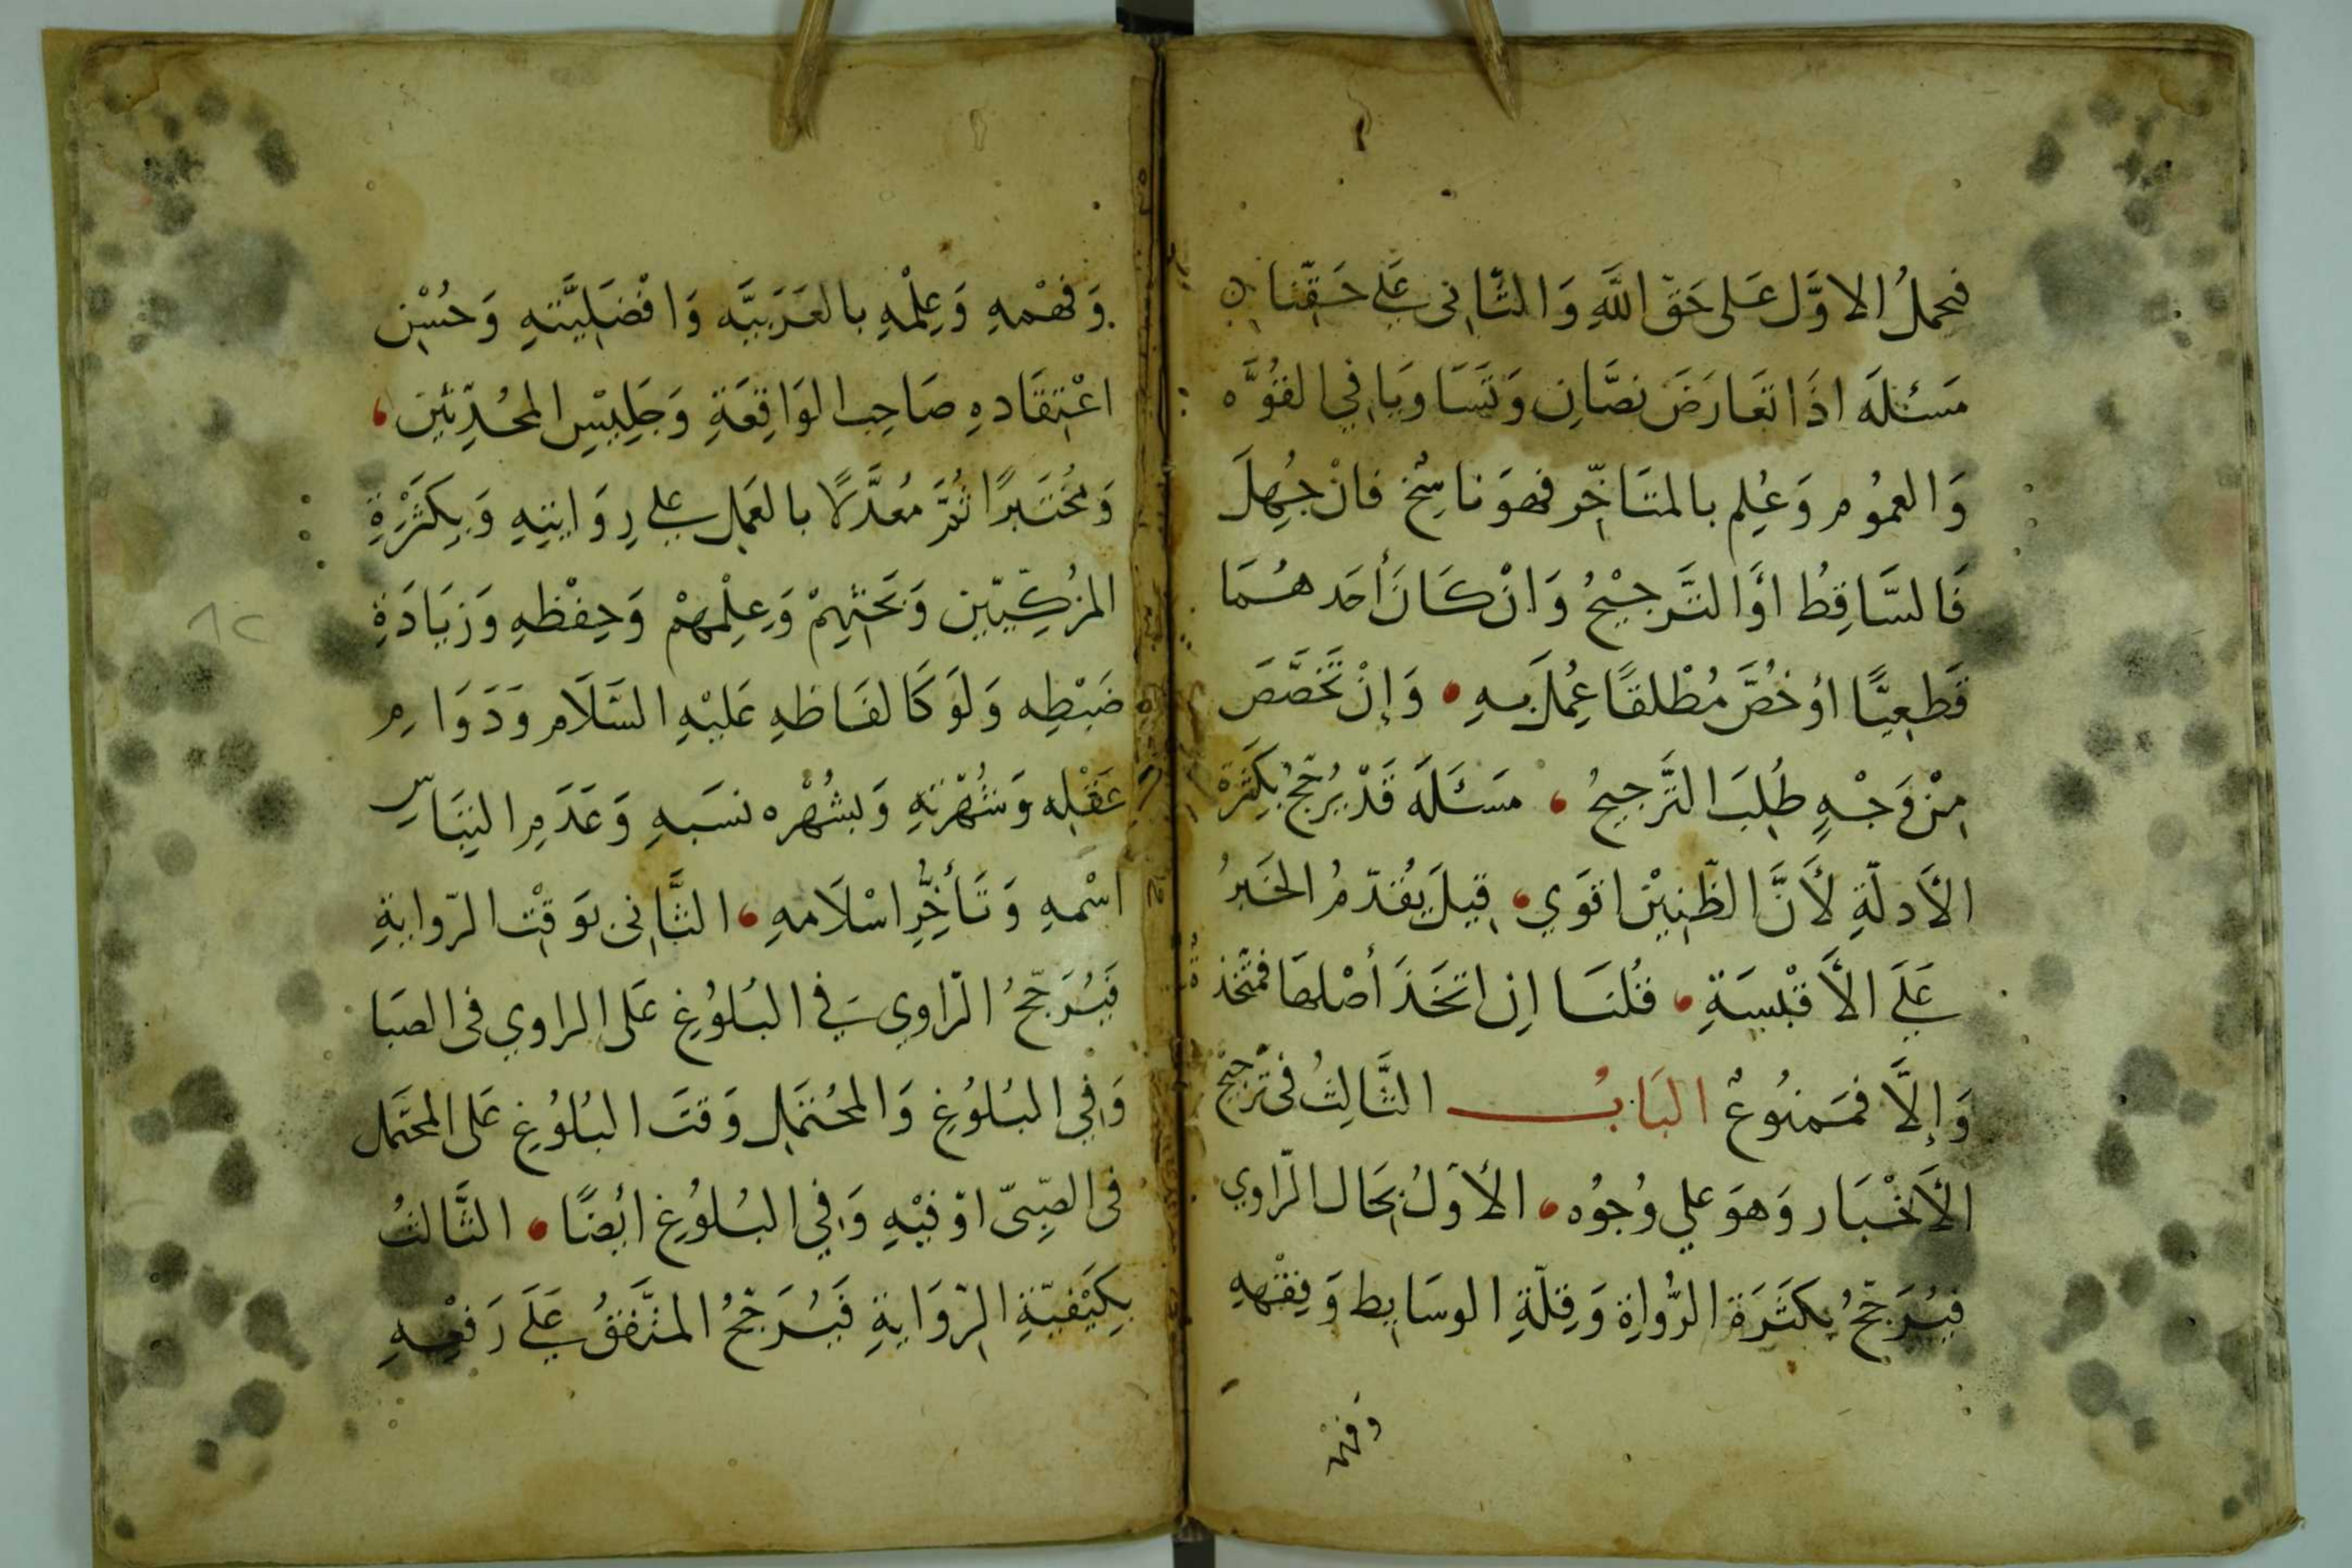 فيحملُ الاوَّل عَلى حَقّ اللَّهِ وَالثَّانى عَلے حَقِّنا
مَسْئلَه اذَا تعَارَضَ نصَّانِ وَتَسَاويَا فِي القُوَّه
وَالعمُوم وَعُلِم بالمتَاخّر فهوَ نَاسِخ فانْ جُهِلَ
فَالسَّاقِطُ اوَّالتَّرجِيْحُ وَانْ كَانَ أحَدهُمَا
قَطعِيًّا اوْ خُصَّ مُطْلقًا عُمِلَ بِهِ • وَإِنْ تَخَصَّصَ
مِنْ وَجْهٍ طُلِبَ التَّرجيحُ • مَسْئَلَه قَدْ يُرجّحُ بِكَثرَة
الأَدلّةِ لأَنَّ الظَّنيْن اقوَي • قيلَ يُقدّمُ الخَبَرُ
عَلَى الأَقْيسَةِ • قُلنَا اِن اتحَدَ أصْلهَا فمتّحدَةٌ
وَإِلَّا فمَمنُوعٌ البَابُ الثَّالِثُ فى تَرْجِيْح
الأَخْبَار وَهوَ علي وُجُوُه • الأوَلُ بحَال الرّاوي
فيُرَجّحُ بِكثَرَة الرُّواةِ وَقِلّةِ الوسَايِط وَفِقْههِ
وَفهْمه
وَفهْمهِ وَعِلْمهِ بالعَرَبيَّه وَافْضَليَّتهِ وَحُسْنِ
اعْتِقَادهِ صَاحِب الوَاقِعَةِ وَجَلِيْسِ المحُدّثين •
وَمُخْتَبرًا ثُمَّ مُعدَّلًا بالعَمَلِ علي رِوَايتِهِ وَبِكَثْرَةِ
المزكِّيّين وَبَحْثِهِمْ وَعِلْمِهمْ وَحِفْظهِ وَزيَادَةِ
ضَبْطِه وَلَوْ كَالفَاظهِ عَليْهِ السَّلَام وَدَوَامِ
عَقْلِه وَشُهْرتهِ وَبشُهْره نسَبهِ وَعَدَمِ التبَاسِ
اسْمهِ وَتَأخُّرِ اسْلَامهِ • الثَّانى بوَقْتِ الرّوايةِ
فَيُرَجّحُ الرّاوِي فِي البُلوُغِ عَلى الراوي فى الصبَا
وَفِي البُلوُغِ وَالمحُتَمِلِ وَقتَ البُلوُغِ عَلى المحتَمِل
فى الصّبىّ اوْ فيْهِ وَفِي البُلوُغِ ايْضًا • الثَّالثُ
بِكَيْفيّةِ الرّوَايةِ فَيُرَجّحُ المتَّفَقُ عَلَى رَفْعِهِ
٨٢